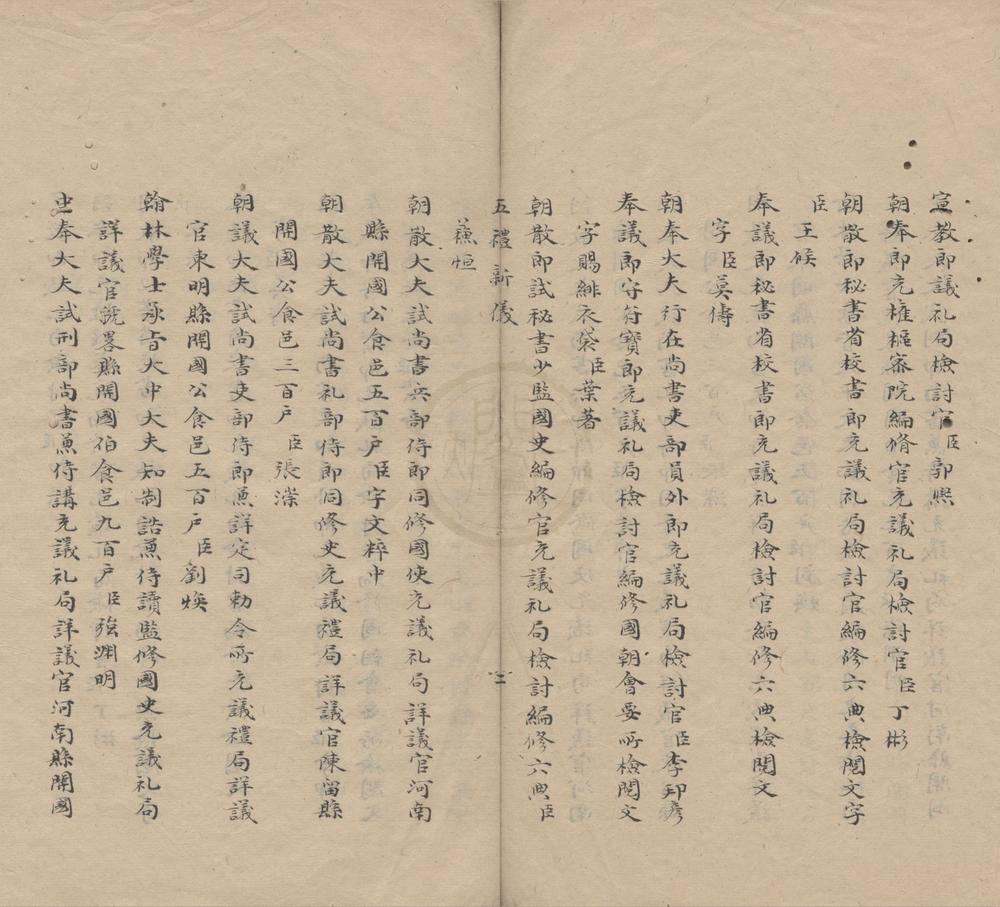 宣教郎議礼局檢討官臣郭熙
朝奉郎充權樞密院編脩官充議礼局檢討官臣丁彬
朝散郎秘書省校書郎充議礼局檢討官編修六典檢閱文字
臣王俁
奉議郎秘書省校書郎充議礼局檢討官編修六典檢閱文
字臣莫儔
朝奉大夫行在尚書吏部員外郎充議礼局檢討官臣李邦彥
奉議郎守符寶郎充議礼局檢討官編修國朝會要所檢閱文
字賜緋衣袋臣葉著
朝散郎試秘書少監國史編修官充議礼局檢討編修六典臣
五禮新儀 二
蘓恒
朝散大夫試尚書兵部侍郎同修國使充議礼局詳議官河南
縣開國公食邑五百戶臣宇文粹中
朝散大夫試尚書礼部侍郎同修史充議禮局詳議官陳留縣
開國公食邑三百戶臣張漴
朝議大夫試尚書吏部侍郎兼詳定同勅令所充議禮局詳議
官東明縣開國公食邑五百戶臣劉煥
翰林學士承旨大中大夫知制誥兼侍讀監修國史充議礼局
詳議官虢畧縣開國伯食邑九百戶臣強淵明
中奉大夫試刑部尚書兼侍講充議礼局詳議官河南縣開國